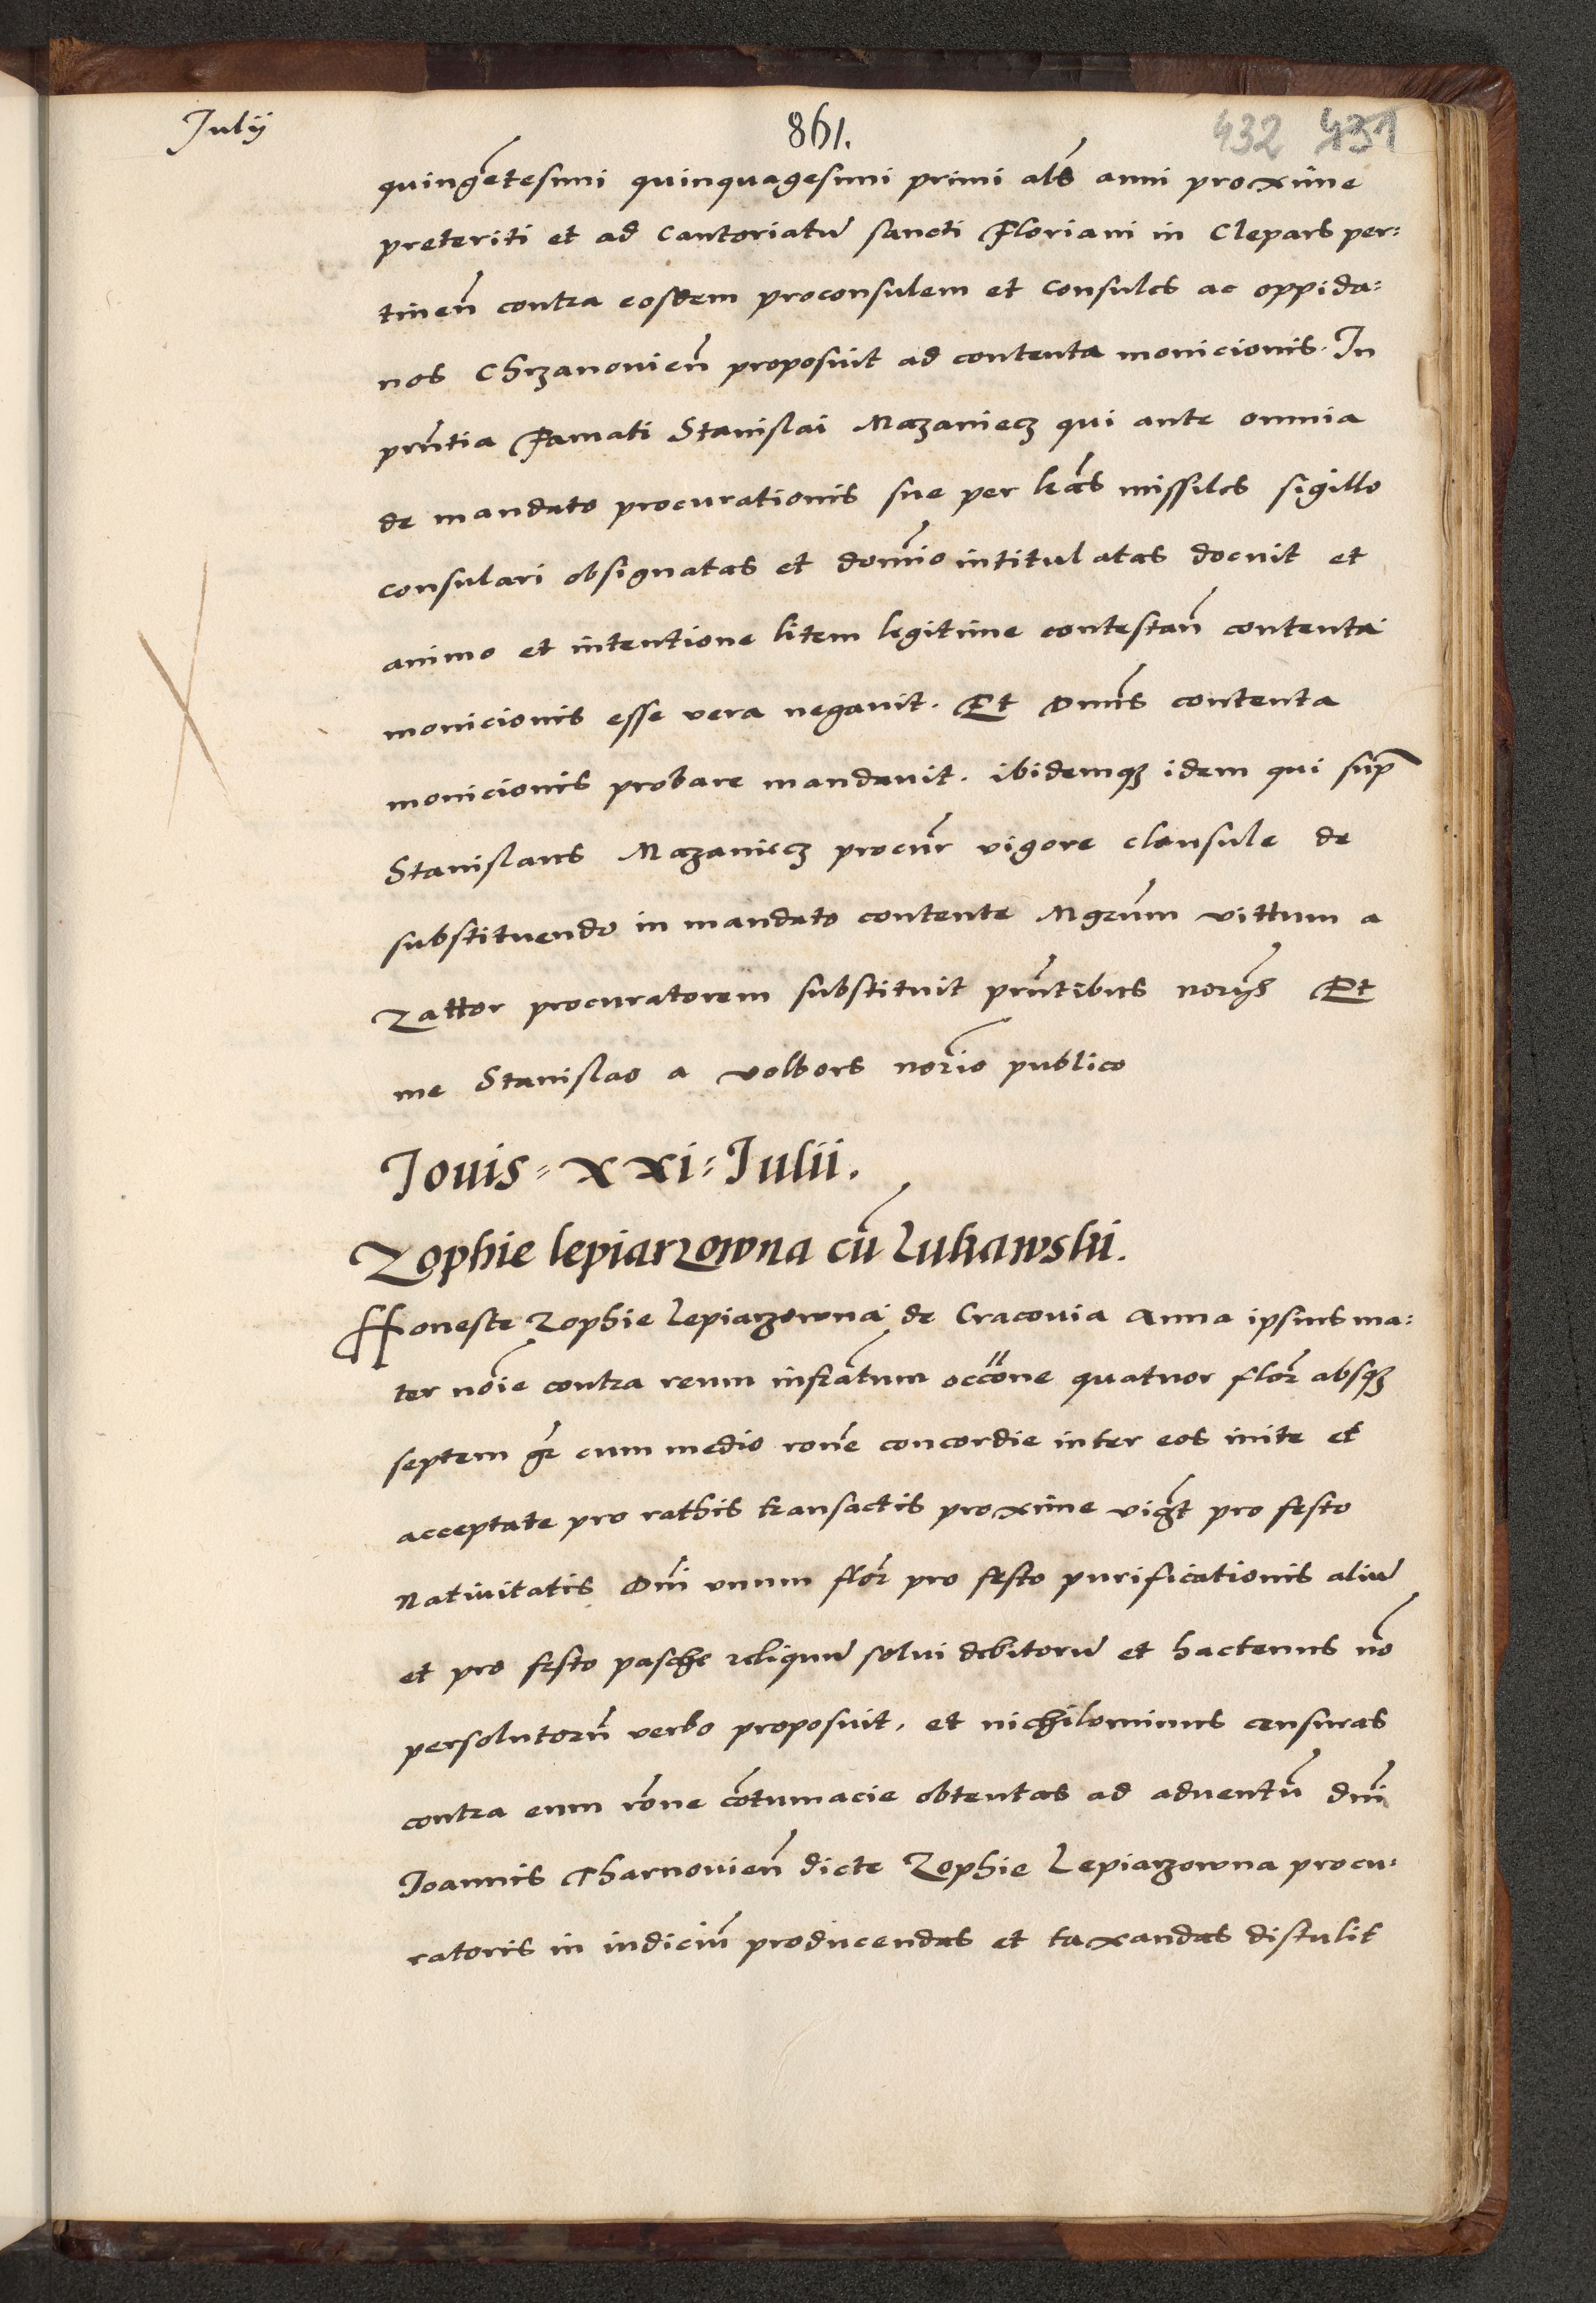 Julij
861.
432 431
quingētesimi quinquagesimi primi als̄ anni proxime
preteriti et ad Cantoriatū sancti Floriani in Clepars per:
tinen̄ contra eosdem proconsulem et consules ac oppida:
nos Chrzanovien̄ proposuit ad contenta monicionis. In
prn̄tia Famati Stanislai Mazaniecz qui ante omnia
de mandato procurationis sue per lr̄as missiles sigillo
consulari obsignatas et domīo intitulatas docuit et
animo et intentione litem legitime contestan̄ contenta
monicionis esse vera negavit. Et Dnus̄ contenta
monicionis probare mandavit. ibidemqȝ idem qui sup̄
Stanislaus Mazaniecz procur̄ vigore clausule de
substituendo in mandato contente Mgrūm vittum a
Zattor procuratorem substituit prn̄tibus norijs̄ Et
me Stanislao a volbors norīo publico
Jovis = xxi = Julii.
Zophie lepiarzowna cū Lukawski.
Honeste Zophie Lepiarzowna de Cracovia Anna ipsius ma:
ter nōie contra reum infrātum occōne quatuor flor̄ absqȝ
septem gr̄ cum medio ronē concordie inter eos inite et
acceptate pro rathis transactis proxime vigr̄t pro festo
Nativitatis Dnī unum flor̄ pro festo purificationis aliū
et pro festo pasche reliquū solvi debitorū et hactenus nō
persolutorū verbo proposuit. et nichilominus censuras
contra eum rōne cōtumacie obtentas ad adventū dnī
Joannis Tharnovien̄ dicte Zophie Lepiarzowna procu:
ratoris in iudiciū producendas et taxandas distulit